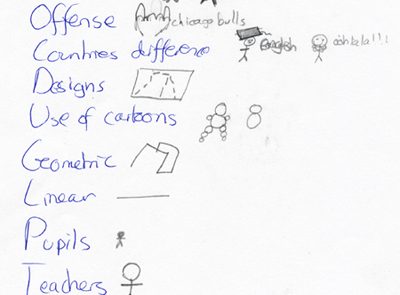 Offense chicago bulls
Countries difference English ooh lala!!!
Designs
Use of cartoons
Geometric
Linear
Pupils
Teachers